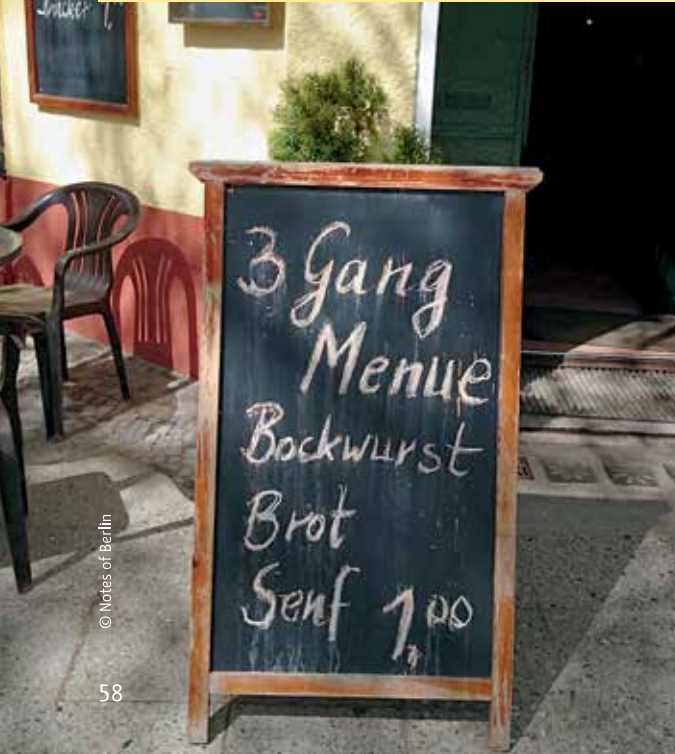 3 Gang
Menue
Bockwurst
Brot
Senf 1,00
© Notes of Berlin
58